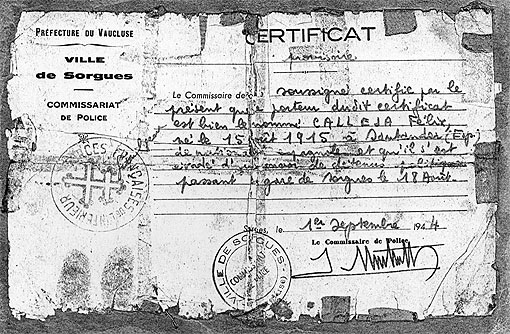 PRÉFECTURE DU VAUCLUSE
VILLE
de Sorgues
COMMISSARIAT
DE POLICE
CERTIFICAT
provisoire
Le Commissaire de soussigné certifie par le
présent que porteur du dit certificat
est bien le nommé CALLEJA Félix,
né le 15 1915 à Santander (Esp)
de nationalité espagnole et qu'il s'est
évadé d' de détenus politiques
passant gare de Sorgues le 18 Août.
le, 1er Septembre 1944
Le Commissaire de Police
FORCES FRANÇAISES DE L'INTÉRIEUR
VILLE DE SORGUES